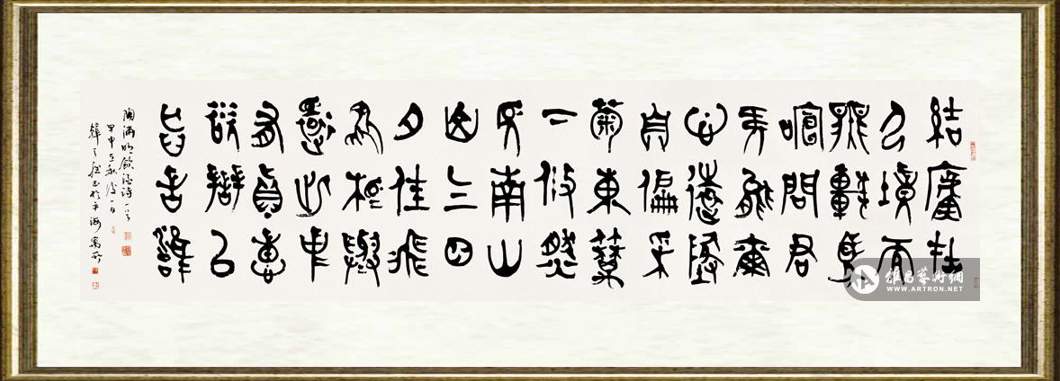 結廬在
人境而
無車馬
喧問君
何能爾
心遠地
自偏采
菊東籬
下悠然
見南山
山氣日
夕佳飛
鳥相與
還此中
有真意
欲辯已
忘言
陶淵明飲酒詩一首
甲申立秋後一日
雅昌藝術網
WWW.ARTRON.NET